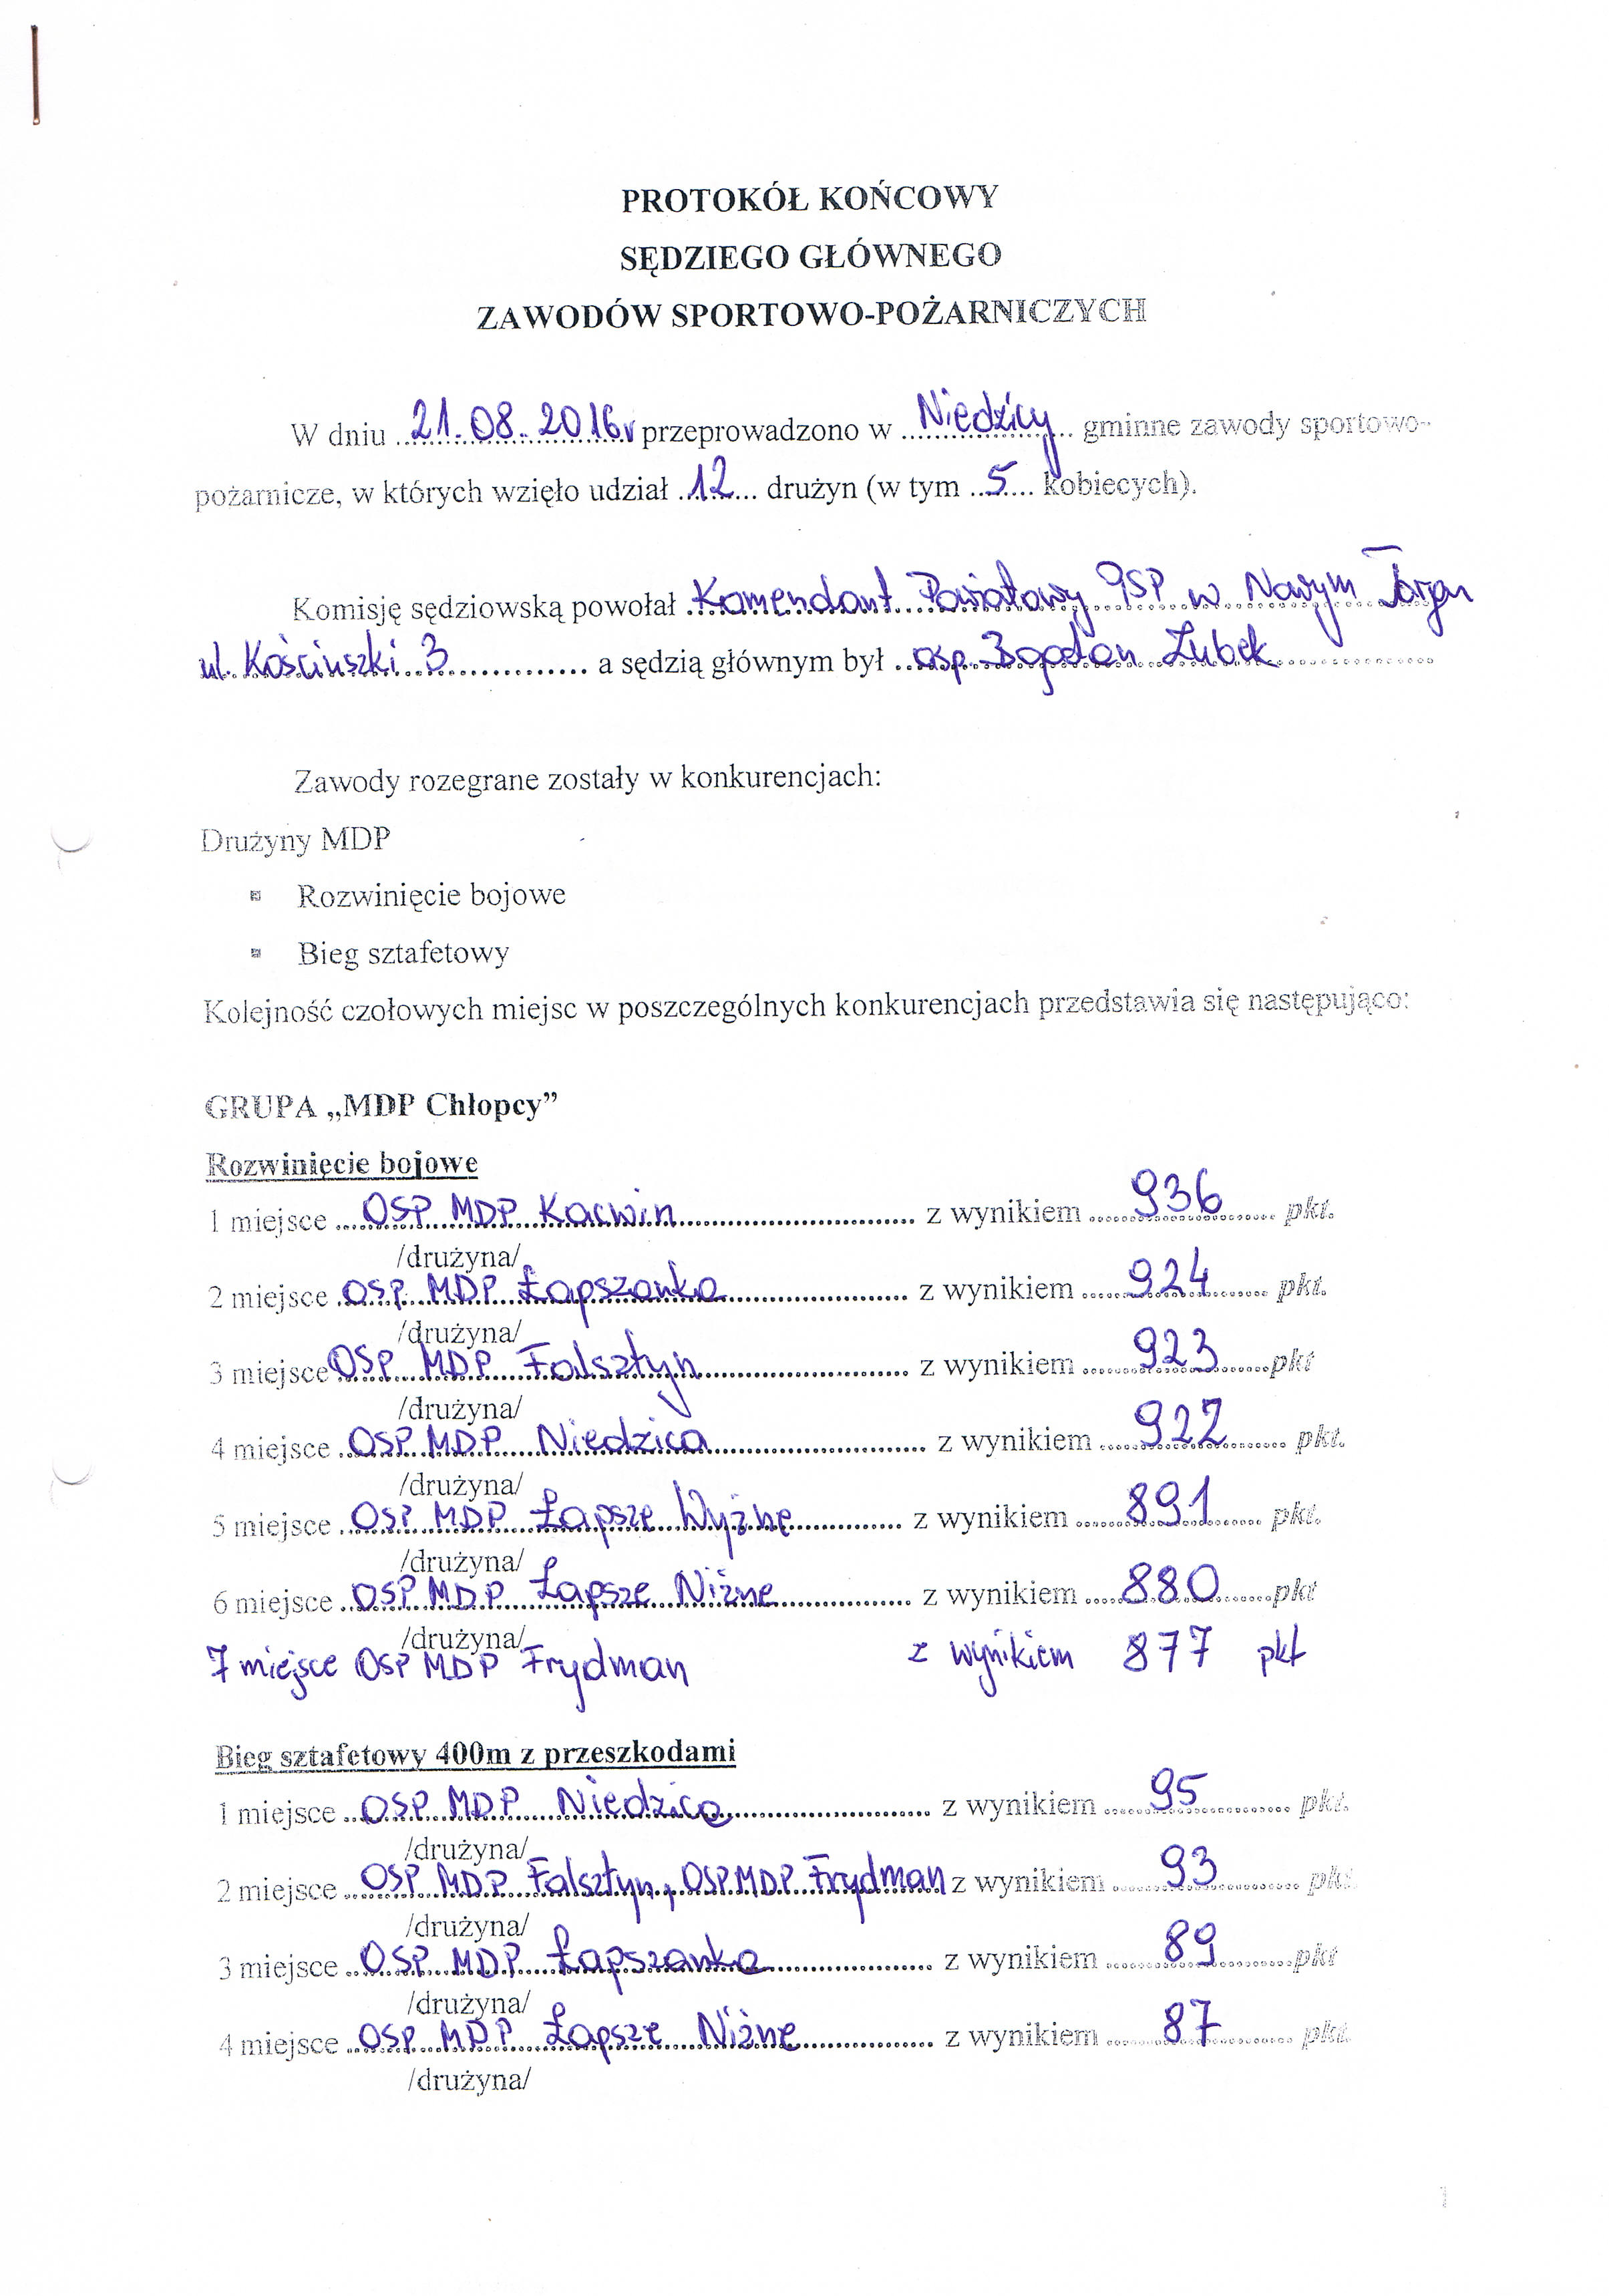 PROTOKÓŁ KOŃCOWY
SĘDZIEGO GŁÓWNEGO
ZAWODÓW SPORTOWO-POŻARNICZYCH
W dniu 21.08.2016r przeprowadzono w Niedzicy gminne zawody sportowo-
pożarnicze, w których wzięło udział 12 drużyn (w tym 5 kobiecych).
Komisję sędziowską powołał Komendant Powiatowy PSP w Nowym Targu
ul. Kościuszki 3 a sędzią głównym był asp. Bogdan Zubek
Zawody rozegrane zostały w konkurencjach:
Drużyny MDP
Rozwinięcie bojowe
Bieg sztafetowy
Kolejność czołowych miejsc w poszczególnych konkurencjach przedstawia się następująco:
GRUPA „MDP Chłopcy”
Rozwinięcie bojowe
1 miejsce OSP MDP Kacwin z wynikiem 936 pkt.
/drużyna/
2 miejsce OSP MDP Łapszanka z wynikiem 924 pkt.
/drużyna/
3 miejsce OSP MDP Falsztyn z wynikiem 923 pkt
/drużyna/
4 miejsce OSP MDP Niedzica z wynikiem 922 pkt.
/drużyna/
5 miejsce OSP MDP Łapsze Wyżne z wynikiem 891 pkt.
/drużyna/
6 miejsce OSP MDP Łapsze Niżne z wynikiem 880 pkt
/drużyna/
7 miejsce OSP MDP Frydman z wynikiem 877 pkt
Bieg sztafetowy 400m z przeszkodami
1 miejsce OSP MDP Niedzica z wynikiem 95 pkt.
/drużyna/
2 miejsce OSP MDP Falsztyn, OSP MDP Frydman z wynikiem 93 pkt.
/drużyna/
3 miejsce OSP MDP Łapszanka z wynikiem 89 pkt
/drużyna/
4 miejsce OSP MDP Łapsze Niżne z wynikiem 87 pkt.
/drużyna/
1